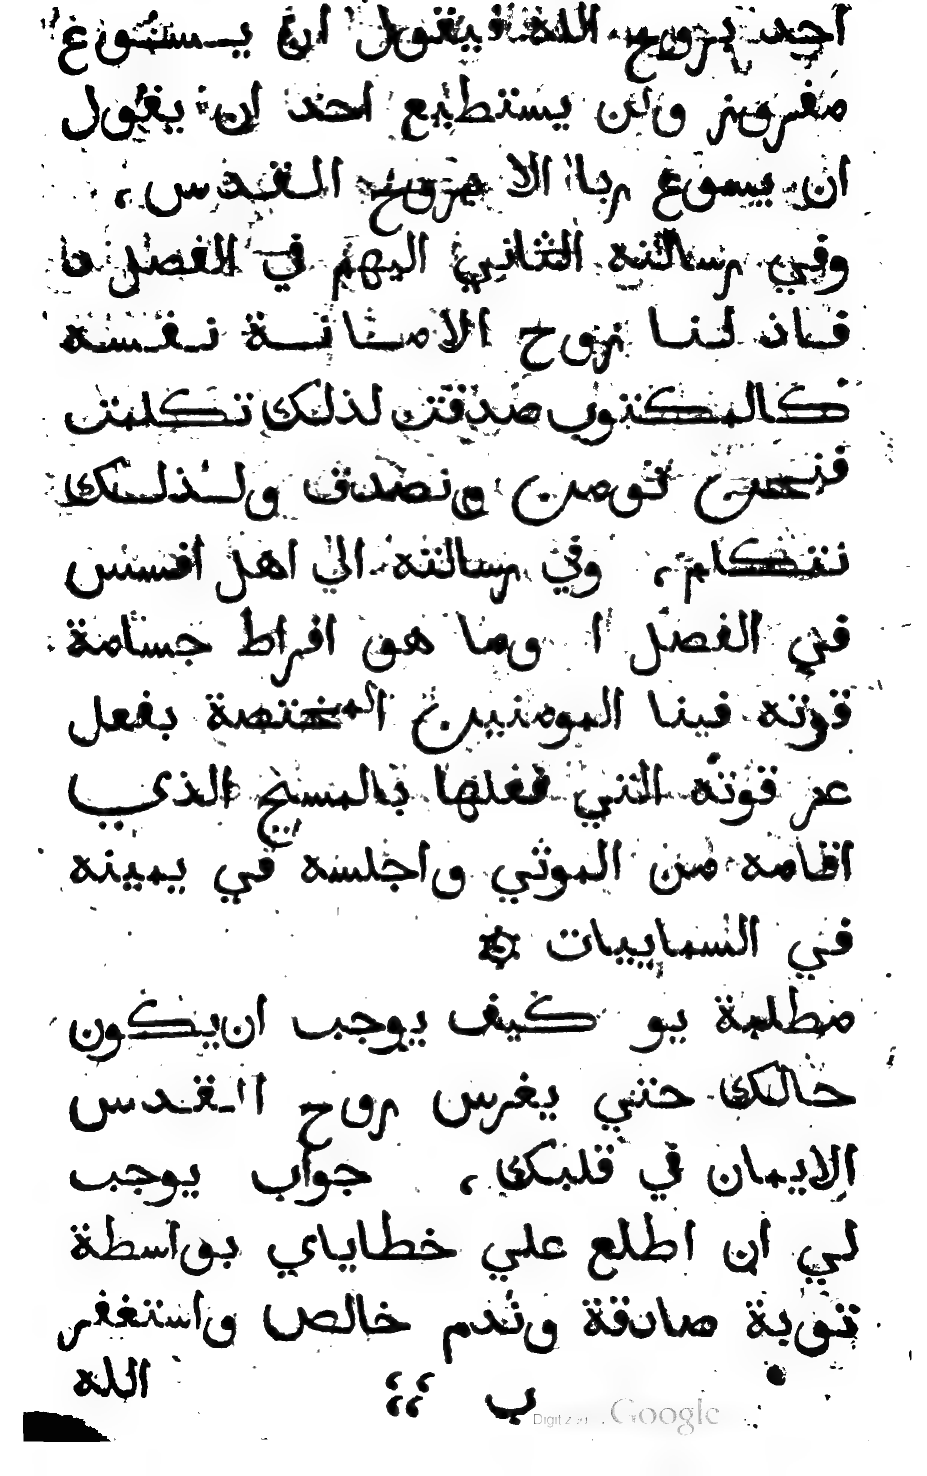 احد بروح الله فيقول ان يسوع
مفروز ولن يستطيع احد ان يقول
ان يسوع ربا الا بروح القدس،
وفي رسالته الثاني اليهم في الفصل
فاذ لنا روح الامانة نفسه
كالمكتوب صدقت لذلك تكلمت
فنحن نومن ونصدق ولذلك
نتكلم، وفي رسالته الي اهل افسس
في الفصل ا وما هو افراط جسامة
قوته فينا المومنين المختصة بفعل
عز قوته التي فعلها بالمسيح الذي
اقامه من الموتي واجلسه في يمينه
في السماييات
مطلمة يو كيف يوجب ان يكون
حالك حتي يغرس روح القدس
الايمان في قلبك، جواب يوجب
لي ان اطلع علي خطاياي بواسطة
توبة صادقة وندم خالص واستغفر
ب الله
Google